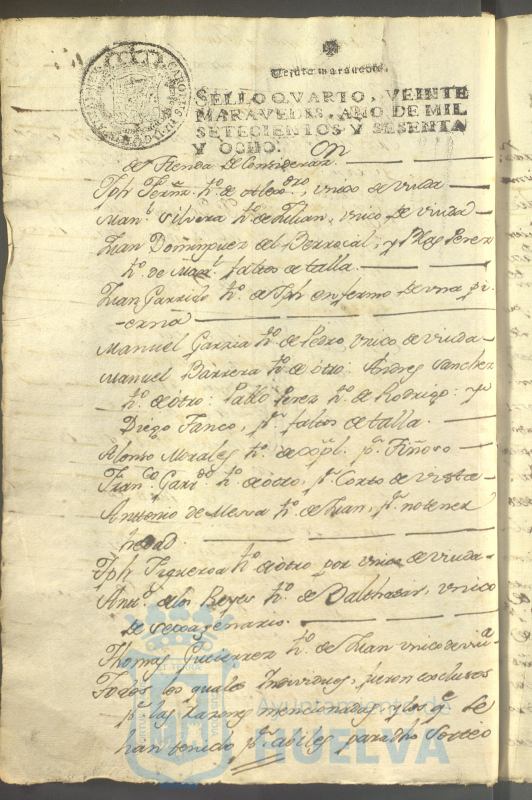 Veinte maravedis.
SELLO QVARTO, VEINTE
MARAVEDIS, AÑO DE MIL
SETECIENTOS Y SESENTA
Y OCHO.
de Tienda de
Jph Ferñz hº de, unico de viuda
Manl Silvera hº de Julian, unico de viuda
Juan Domínguez del Berrocal, y Blas Perez
hº de Manl faltos de talla.
Juan Garrido hº de Jph enfermo de una pi-
erna
Manuel Garzia hº de Pedro unico de viuda
Manuel Barrera hº de otro: Andres Sanchez
hº de otro: Pablo Perez hº de Rodrigo: y
Diego Franco, pr faltos de talla.
Alonso Morales hº de pr Tiñoso
Franco Garrdo hº de otro, pr Corto de vista
Antonio de Messa hº de Juan, pr no tener
hedad.
Jph Figueroa hº de otro por unico de viuda
Anto de los Reyes hº de Balthazar, unico
de sexagenario.
Thomas Gutierrez hº de Juan unico de viua
Todos los quales Individuos, fueron exclusos
pr las razones mencionadas, y los qe se
han tenido pr abiles para dho Sorteo
Ayuntamiento de
HUELVA